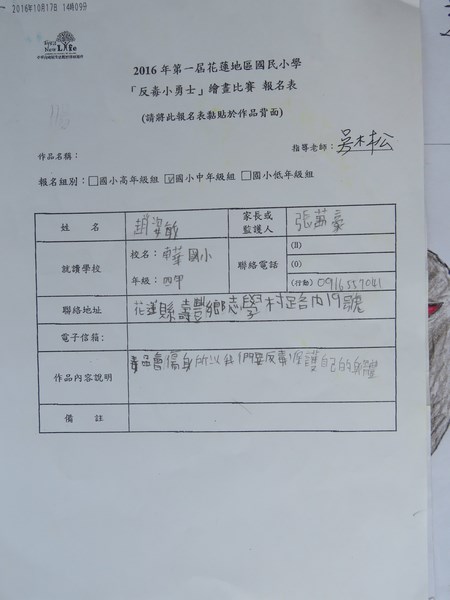 2016年10月17日 14時09分
New Life
2016 年第一屆花蓮地區國民小學
「反毒小勇士」繪畫比賽 報名表
(請將此報名表黏貼於作品背面)
指導老師：吳木松
作品名稱：
報名組別：□國小高年級組 ☑國小中年級組 □國小低年級組
姓 名 趙姿敏 家長或監護人
就讀學校 校名：東華國小 聯絡電話 (H)
(O)
年級：四甲 (行動) 0916557041
聯絡地址 花蓮縣壽豐鄉志學村 19號
電子信箱：
作品內容說明 毒品會傷身所以我們要反毒保護自己的身體
備 註